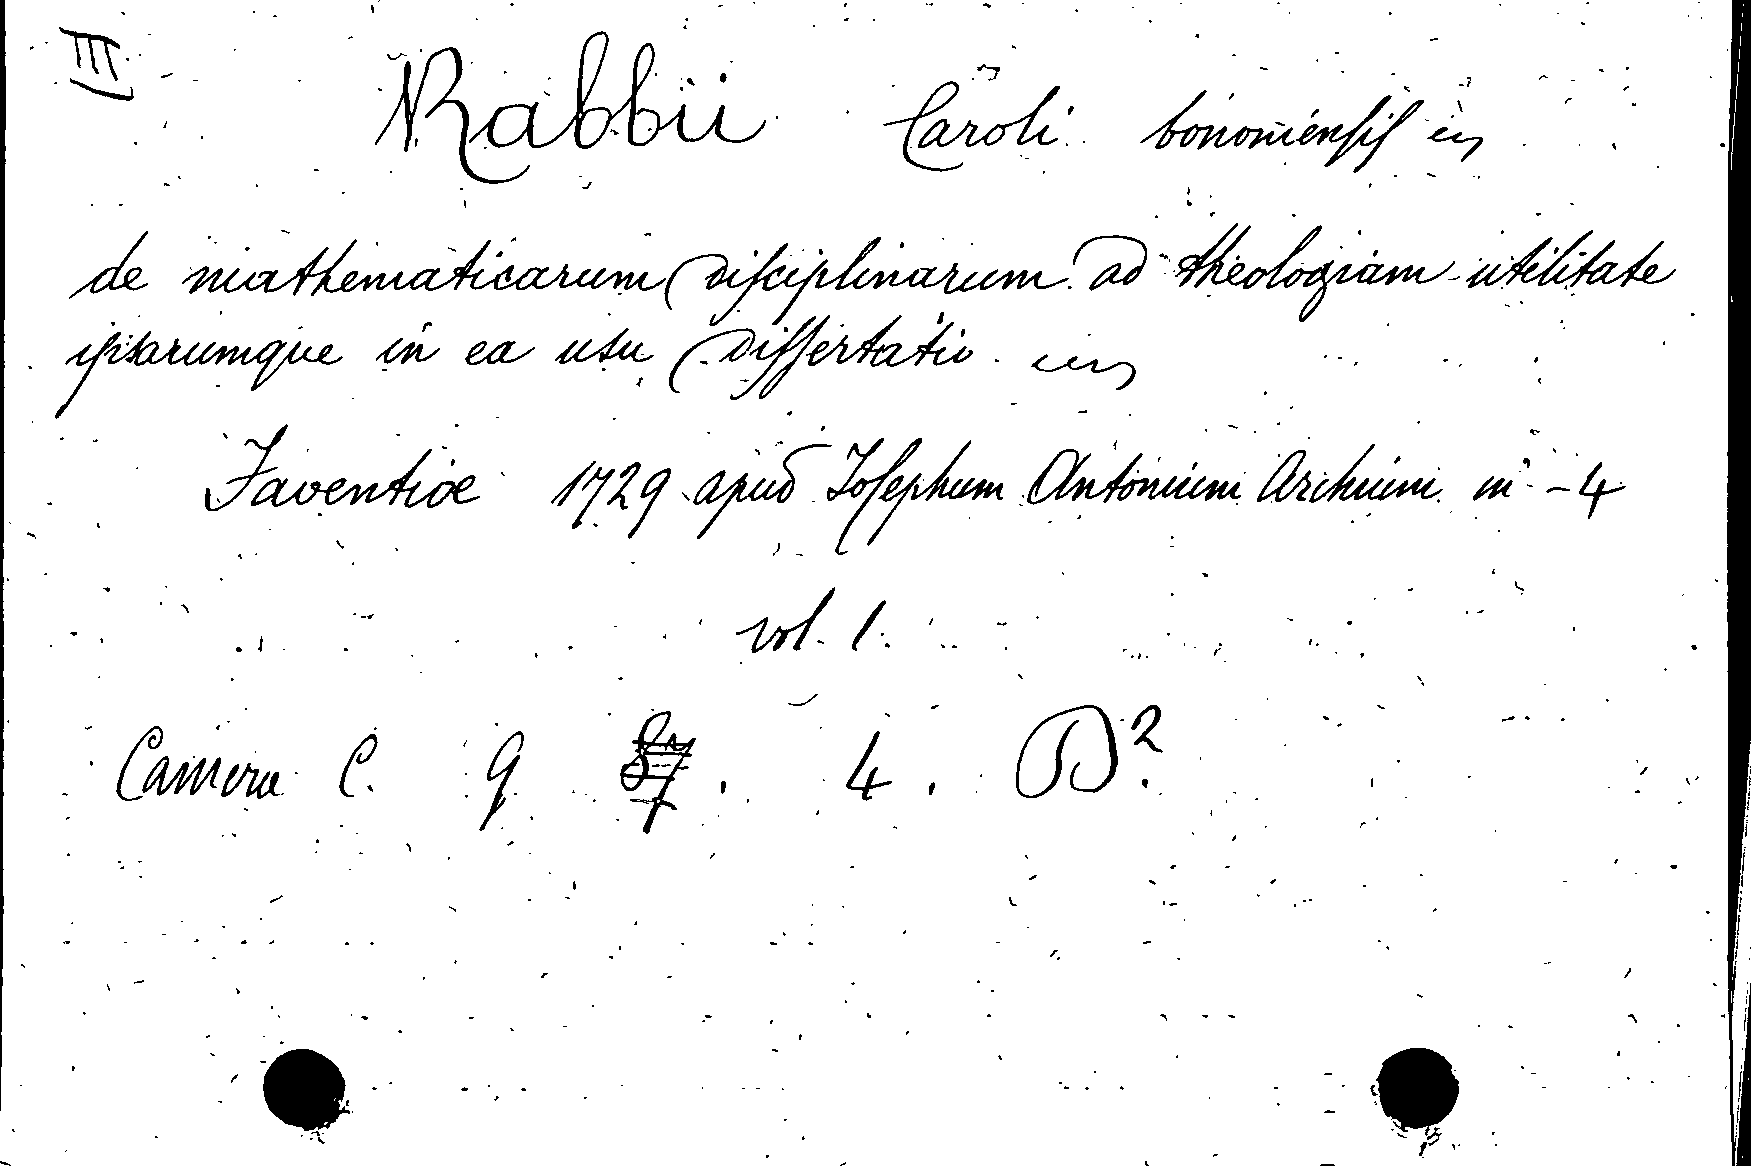 III
Rabbii Caroli bononiensis
de mathematicarum disciplinarum ad theologiam utilitate
ipsarumque in ea usu dissertatio
Faventiæ 1729 apud Iosephum Antonium Archium in-4
vol. 1.
Camera C. 9 87. 4. D².